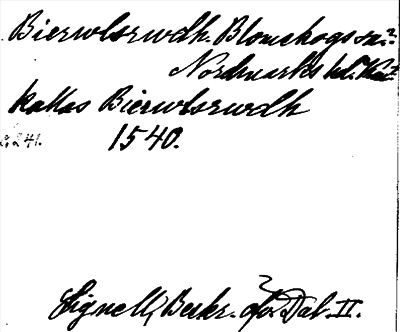 Bierwlsrwdh. Blomskogs sn?
Nordmarks hd. Vär?
kallas Bierwlsrwdh
1540.
Lignell, Beskr. öfv. Dal. II.